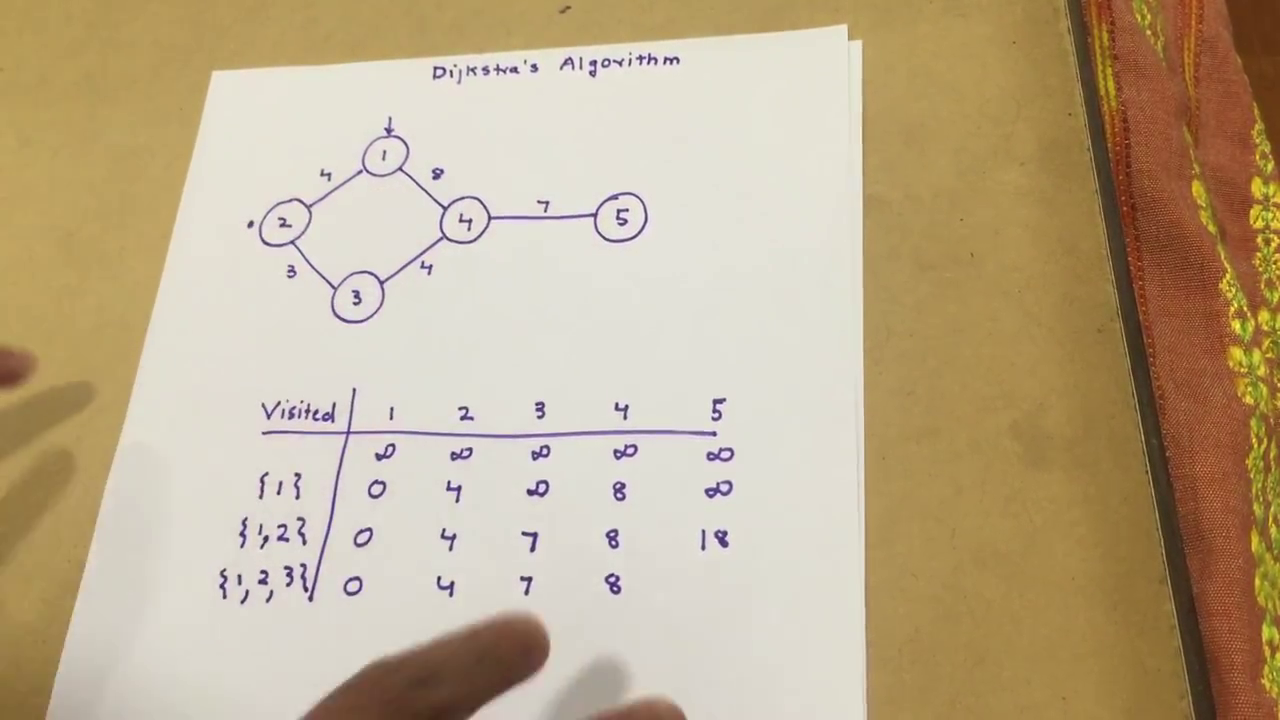 Dijkstra's Algorithm
1
4 8
2 4 7 5
3 4
3
Visited 1 2 3 4 5
∞ ∞ ∞ ∞ ∞
{1} 0 4 ∞ 8 ∞
{1,2} 0 4 7 8 18
{1,2,3} 0 4 7 8